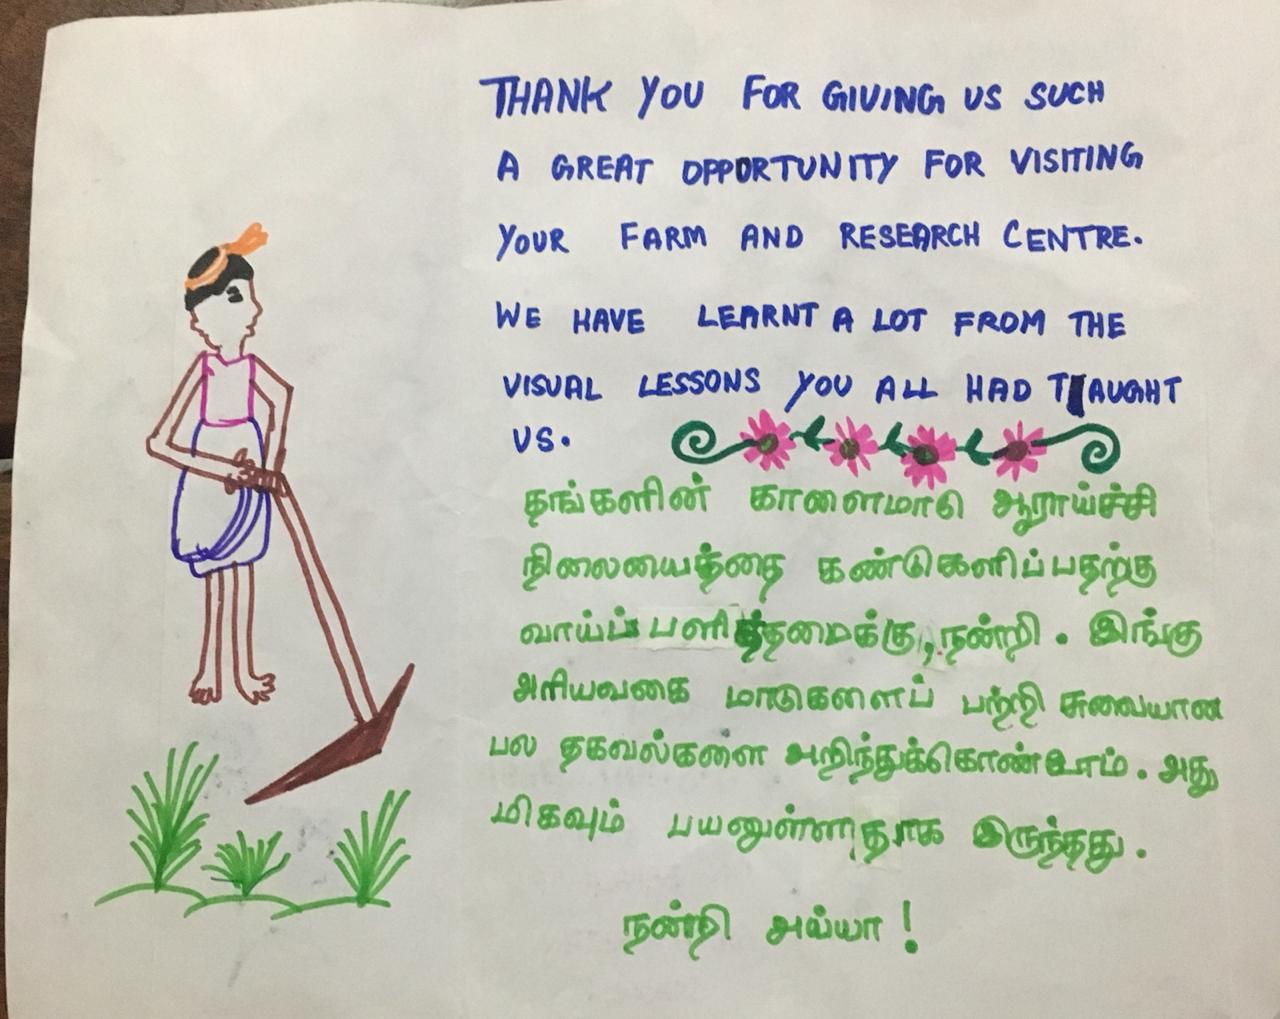 THANK YOU FOR GIVING US SUCH
A GREAT OPPORTUNITY FOR VISITING
YOUR FARM AND RESEARCH CENTRE.
WE HAVE LEARNT A LOT FROM THE
VISUAL LESSONS YOU ALL HAD TAUGHT
US.
தங்களின் காளைமாடு ஆராய்ச்சி
நிலையத்தை கண்டுகளிப்பதற்கு
வாய்ப்பளித்தமைக்கு, நன்றி. இங்கு
அரியவகை மாடுகளைப் பற்றி சுவையான
பல தகவல்களை அறிந்துக்கொண்டோம். அது
மிகவும் பயனுள்ளதாக இருந்தது.
நன்றி அய்யா!